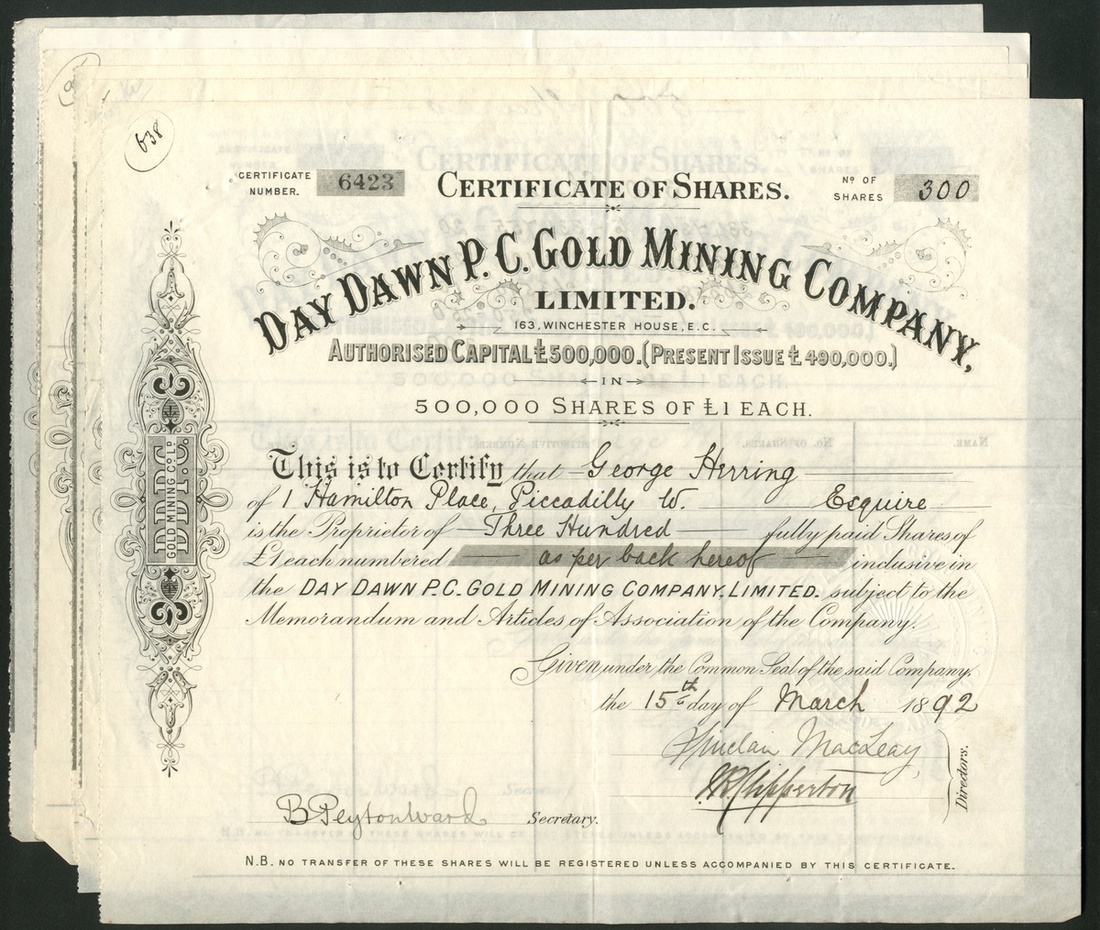 638
CERTIFICATE NUMBER. 6423
CERTIFICATE OF SHARES.
Nº OF SHARES 300
DAY DAWN P. C. GOLD MINING COMPANY,
LIMITED.
163, WINCHESTER HOUSE, E.C.
AUTHORISED CAPITAL £500,000. (PRESENT ISSUE £490,000.)
IN
500,000 SHARES OF £1 EACH.
D.D.P.C.
GOLD MINING CO. LD.
This is to Certify that George Herring
of 1 Hamilton Place, Piccadilly W. Esquire
is the Proprietor of Three Hundred fully paid Shares of
£1 each numbered as per back hereof inclusive in
the DAY DAWN P.C. GOLD MINING COMPANY, LIMITED. subject to the
Memorandum and Articles of Association of the Company.
Given under the Common Seal of the said Company,
the 15th day of March 1892
Sinclair MacLeay
Directors.
B Peyton Ward Secretary.
N.B. NO TRANSFER OF THESE SHARES WILL BE REGISTERED UNLESS ACCOMPANIED BY THIS CERTIFICATE.